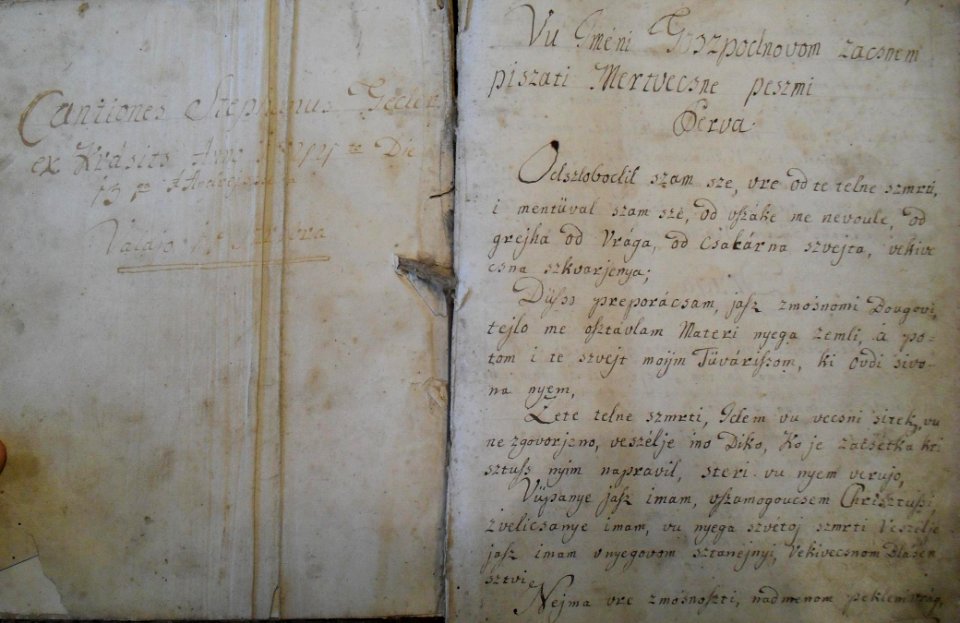 Cantiones Stephanus
ex Krásits Anno Die
13
Vu Iméni Goszpodnovom zacsnem
piszati Mertvecsne peszmi
Perva
Odszlobodil szam sze, vre od te telne szmrti,
i mentüvál szam szé, od vszáke me nevoule, od
grejha od Vrága, od Csakárna szvejta, vekive
csna szkvarjenya;
Düsso preporácsam, jasz zmósnomi Bougovi,
tejlo me osztávlam Materi nyega zemli, á po-
tom i te szvejt mojim Tüvárissom, ki ovdi sivo
na nyem,
Z ete telne szmrti, Idem vu vecsni sitek, vu
ne zgovorjeno, veszélje ino Diko, Ko je zatsétka kri
sztuss nyim napravil, steri vu nyem verujo,
Vüpanye jasz imam, vszamogoucsem Christussi,
zvelicsanye imam, vu nyega szvétoj szmrti Veszélje
jasz imam vnyegovom sztanejnyi, Vekivecsnom Blásen
sztvi
Nejma vre zmósnoszti, nadmenom pekleni vrág,